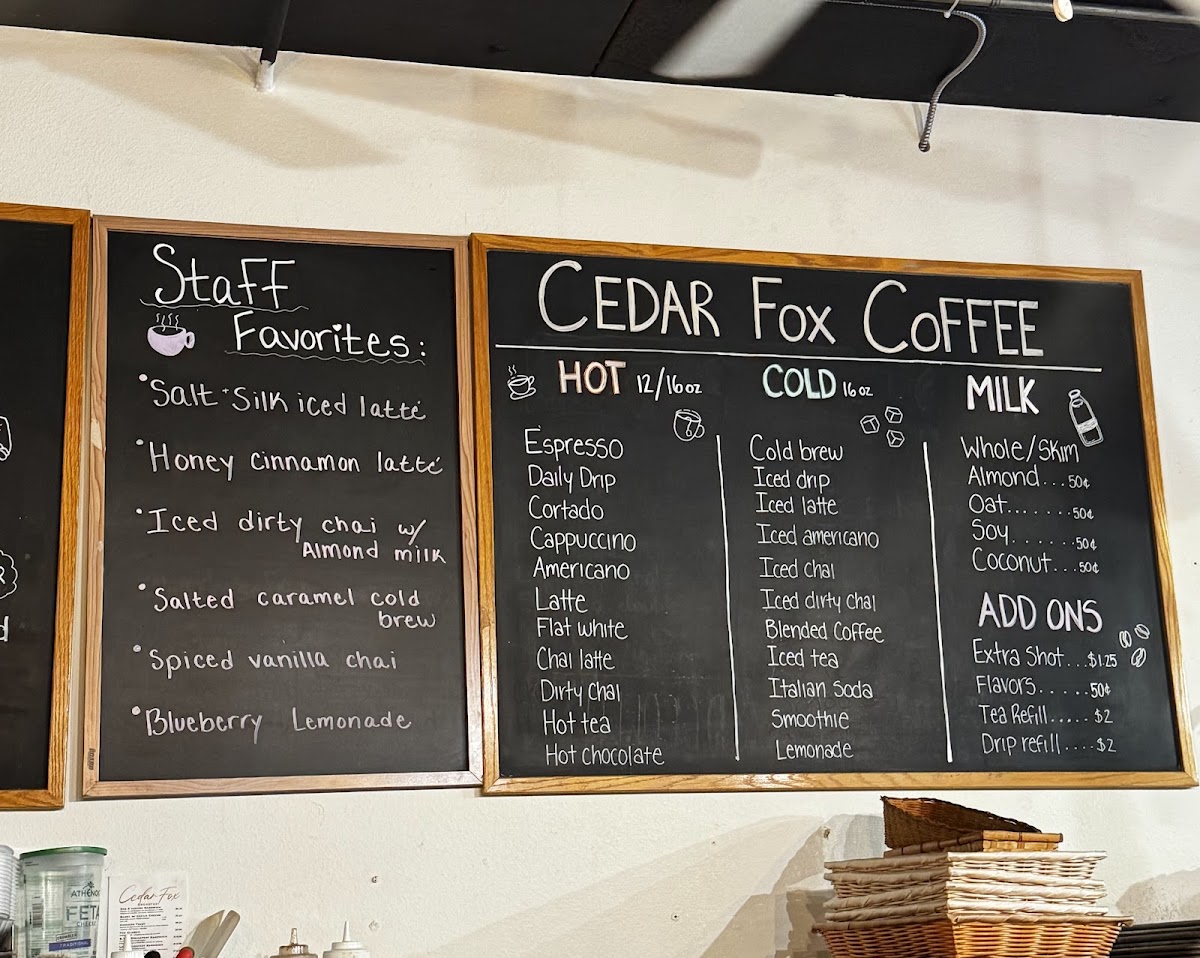 Staff
Favorites:
• Salt + Silk iced latté
• Honey cinnamon latté
• Iced dirty chai w/
Almond milk
• Salted caramel cold
brew
• Spiced vanilla chai
• Blueberry Lemonade
CEDAR FOX COFFEE
HOT 12/16oz
Espresso
Daily Drip
Cortado
Cappuccino
Americano
Latte
Flat white
Chai latte
Dirty Chai
Hot tea
Hot chocolate
COLD 16oz
Cold brew
Iced drip
Iced latte
Iced americano
Iced chai
Iced dirty chai
Blended Coffee
Iced tea
Italian Soda
Smoothie
Lemonade
MILK
Whole/Skim
Almond...50¢
Oat.......50¢
Soy......50¢
Coconut...50¢
ADD ONS
Extra Shot...$1.25
Flavors......50¢
Tea Refill.....$2
Drip refill....$2
FETA
TRADITIONAL
Cedar Fox